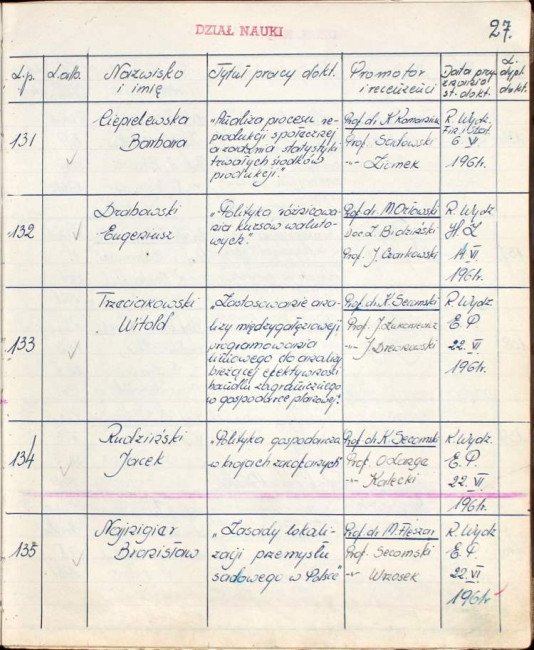 DZIAŁ NAUKI
27.
L.p.
L.alb.
Nazwisko
i imię
Tytuł pracy dokt.
Promotor
i recenzenci
Data przy-
znania
st. dokt.
L.
dypl.
dokt.
131
Ciepielewska
Barbara
„Analiza procesu re-
produkcji społecznej
a zadania statystyki
trwałych środków
produkcji."
Prof. dr. K. Romaniuk
Prof. Sadowski
-"- Zienek
R. Wydz.
Fin. i Stat.
6. VI.
1961r.
132
Drabowski
Eugeniusz
„Polityka różnicowa-
nia kursów waluto-
wych."
Prof. dr. M. Orłowski
Doc. Z. Bidziński
Prof. J. Czarkowski
R. Wydz.
H. Z.
14 VI.
1961r.
133
Trzeciakowski
Witold
„Zastosowanie ana-
lizy międzygałęziowej
programowania
liniowego do analizy
bieżącej efektywności
handlu zagranicznego
w gospodarce planowej."
Prof. dr. K. Secomski
Prof. J. Łukasiewicz
-"- J. Drewnowski
R. Wydz.
E. P.
22. VI.
1961r.
134
Rudziński
Jacek
„Polityka gospodarcza
w krajach zacofanych"
Prof. dr. K. Secomski
Prof. O. Lange
-"- Kalecki
R. Wydz.
E. P.
22. VI.
1961r.
135
Najnigier
Bronisław
„Zasady lokali-
zacji przemysłu
sadowego w Polsce"
Prof. dr. M. Fleszar
Prof. Secomski
-"- Wrzosek
R. Wydz
E. P.
22. VI.
1961r